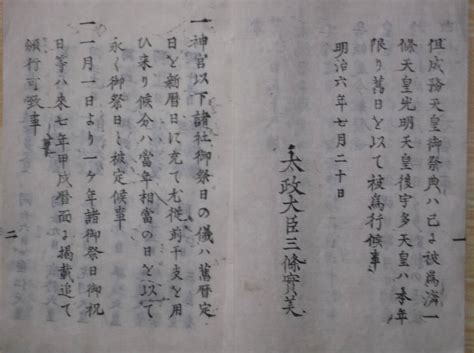 但成務天皇御祭典ハ已ニ被為濟一
條天皇光明天皇後宇多天皇ハ本年
限リ舊日ヲ以テ被為行候事
明治六年七月二十日
太政大臣三條實美
一
一神宮以下諸社御祭日ノ儀ハ舊暦定
日ヲ新暦日ニ充テ尤従前干支ヲ用
ヒ来リ候分ハ當年相當ノ日ヲ以テ
永ク御祭日ト被定候事
一一月一日ヨリ一ケ年諸御祭日御祝
日等ハ来七年甲戌暦面ニ掲載追テ
頒行可致事
二